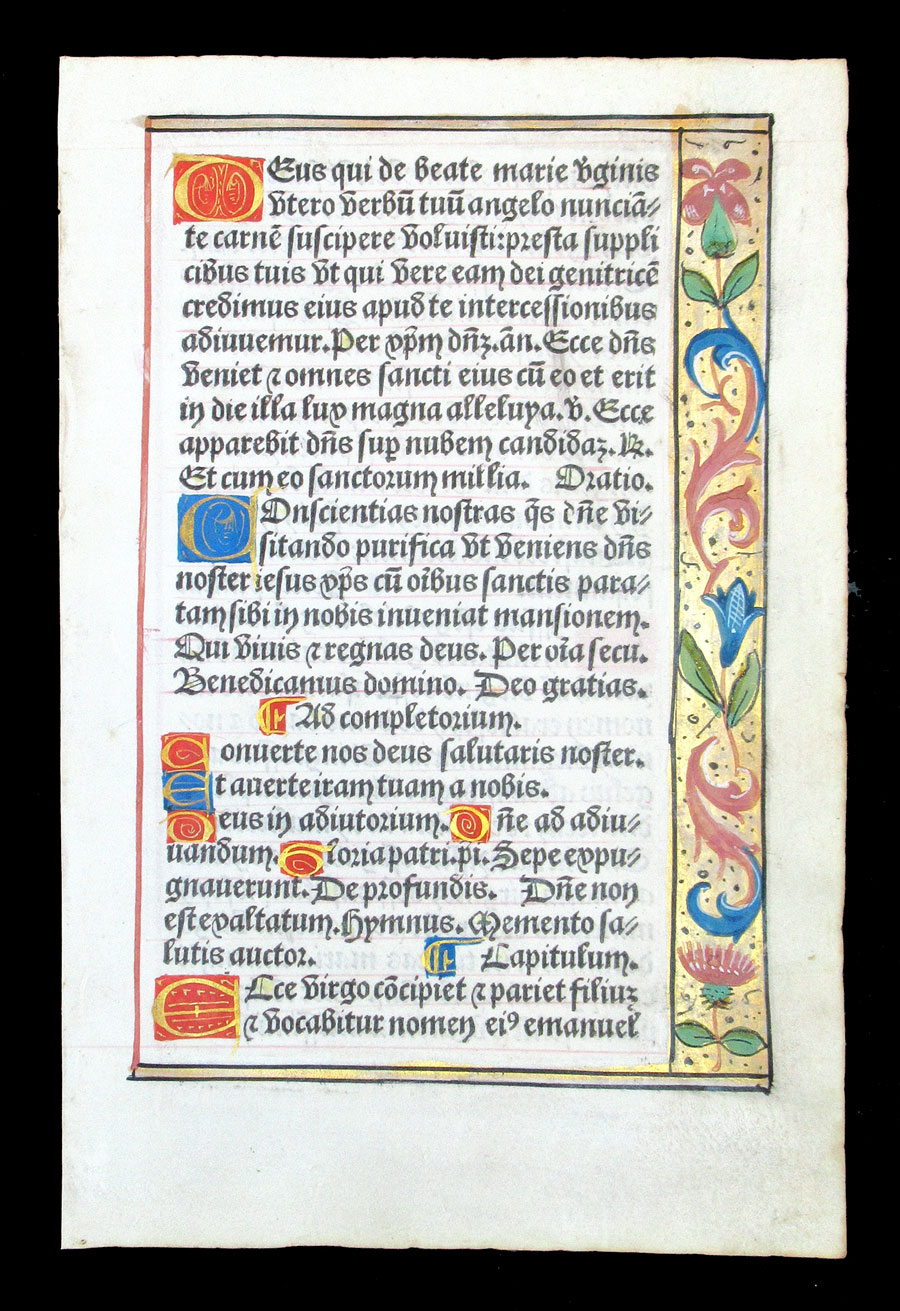 Deus qui de beate marie v̓ginis
vtero verbū tuū angelo nunciā⸗
te carnē suscipere voluisti:presta suppli
cibus tuis vt qui vere eam dei genitricē
credimus eius apud te intercessionibus
adiuuemur.Per xp̄m dn̄ꝫ.an̄.Ecce dn̄s
veniet ⁊ omnes sancti eius cū eo et erit
in die illa lux magna alleluya.v̓.Ecce
apparebit dn̄s sup̱ nubem candidaꝫ.℟.
Et cum eo sanctorum millia. Oratio.
Conscientias nostras q̄s dn̄e vi⸗
sitando purifica vt veniens dn̄s
noster iesus xp̄s cū oībus sanctis para⸗
tam sibi in nobis inueniat mansionem.
Qui viuis ⁊ regnas deus. Per oīa secu.
Benedicamus domino. Deo gratias.
¶ Ad completorium.
Conuerte nos deus salutaris noster.
Et auerte iram tuam a nobis.
Deus in adiutorium. Dn̄e ad adiu⸗
uandum. Gloria patri.p̄i. Sepe expu⸗
gnauerunt. De profundis. Dn̄e non
est exaltatum. Hymnus. Memento sa⸗
lutis auctor. ¶ Capitulum.
Ecce virgo cōcipiet ⁊ pariet filiuꝫ
⁊ vocabitur nomen eiꝰ emanuel